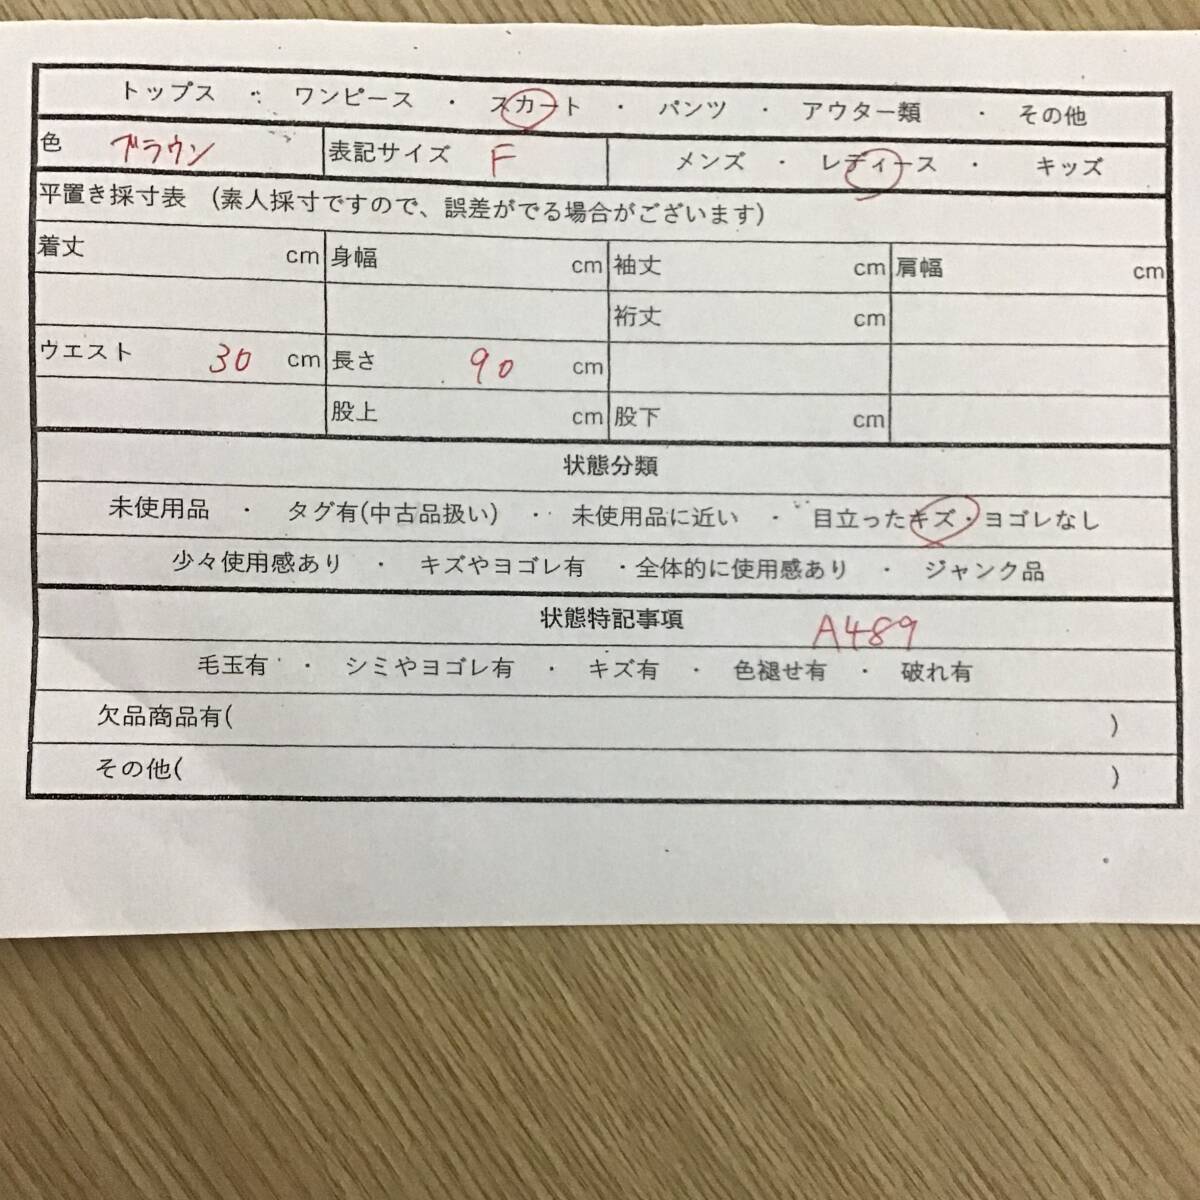 トップス ・ ワンピース ・ スカート ・ パンツ ・ アウター類 ・ その他
色 ブラウン 表記サイズ F メンズ ・ レディース ・ キッズ
平置き採寸表 (素人採寸ですので、誤差がでる場合がございます)
着丈 cm 身幅 cm 袖丈 cm 肩幅 cm
裄丈 cm
ウエスト 30 cm 長さ 90 cm
股上 cm 股下 cm
状態分類
未使用品 ・ タグ有(中古品扱い) ・ 未使用品に近い ・ 目立ったキズ・ヨゴレなし
少々使用感あり ・ キズやヨゴレ有 ・全体的に使用感あり ・ ジャンク品
状態特記事項 A489
毛玉有 ・ シミやヨゴレ有 ・ キズ有 ・ 色褪せ有 ・ 破れ有
欠品商品有( )
その他( )